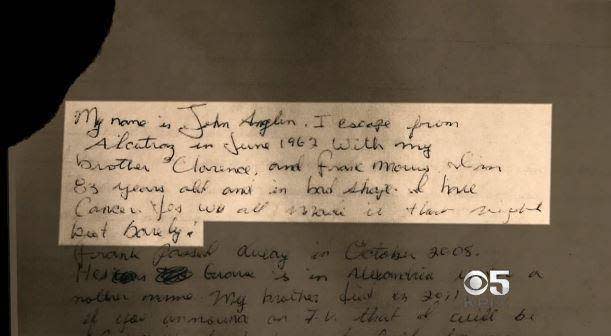 My name is John Anglin. I escape from
Alcatraz in June 1962 With my
brother Clarence, and Frank Morris. I'm
83 years old and in bad shape. I have
Cancer. Yes we all made it that night
but barely!
Frank passed away in October 2008.
His Grave is in Alexandria under a
nother name. My brother died in 2011.
if you announce on T.V. that I will be
5